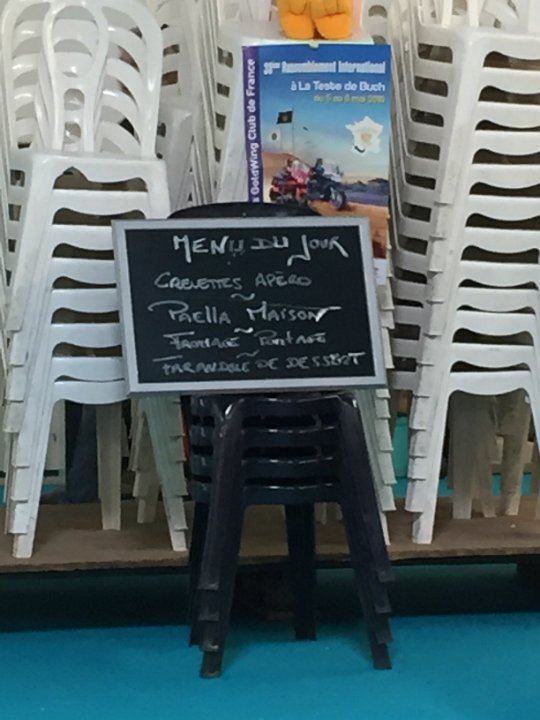 38ème Rassemblement International
à La Teste de Buch
du 5 au 8 mai 2016
GoldWing Club de France
MENU DU JOUR
CREVETTES APÉRO
~
PAELLA MAISON
~
FROMAGE
~
FARANDOLE DE DESSERT